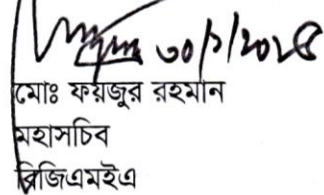 ৩০/১/২০২৫
মোঃ ফয়জুর রহমান
মহাসচিব
বিজিএমইএ